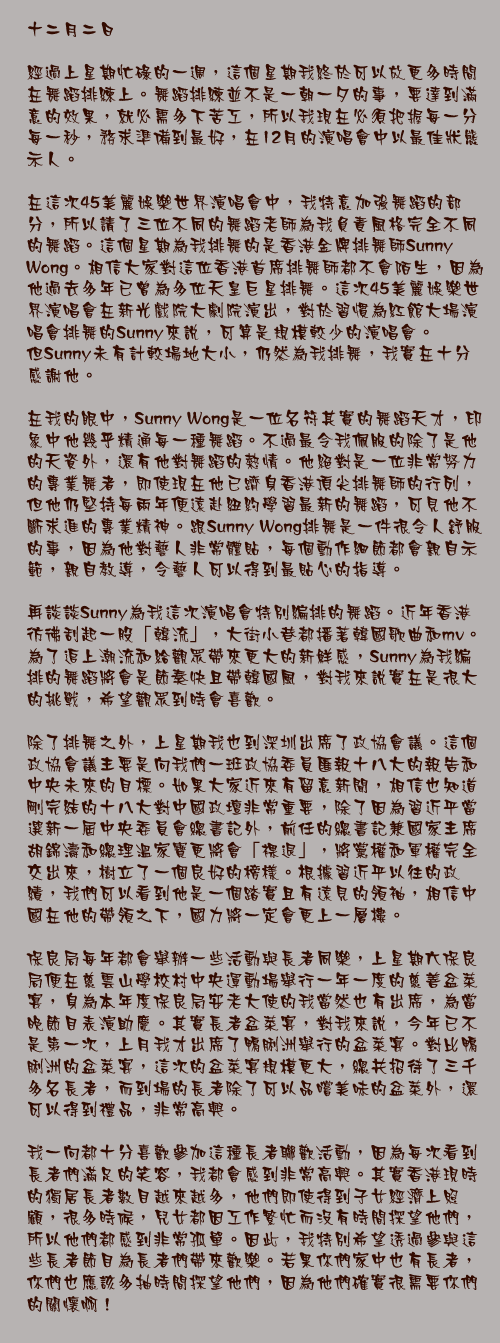 十二月二日
經過上星期忙碌的一週，這個星期我終於可以放更多時間
在舞蹈排練上。舞蹈排練並不是一朝一夕的事，要達到滿
意的效果，就必需多下苦工，所以我現在必須把握每一分
每一秒，務求準備到最好，在12月的演唱會中以最佳狀態
示人。
在這次45美麗娛樂世界演唱會中，我特意加強舞蹈的部
分，所以請了三位不同的舞蹈老師為我負責風格完全不同
的舞蹈。這個星期為我排舞的是香港金牌排舞師Sunny
Wong。相信大家對這位香港首席排舞師都不會陌生，因為
他過去多年已曾為多位天皇巨星排舞。這次45美麗娛樂世
界演唱會在新光戲院大劇院演出，對於習慣為紅館大場演
唱會排舞的Sunny來說，可算是規模較少的演唱會。
但Sunny未有計較場地大小，仍然為我排舞，我實在十分
感謝他。
在我的眼中，Sunny Wong是一位名符其實的舞蹈天才，印
象中他幾乎精通每一種舞蹈。不過最令我佩服的除了是他
的天資外，還有他對舞蹈的熱情。他絕對是一位非常努力
的專業舞者，即使現在他已躋身香港頂尖排舞師的行列，
但他仍堅持每兩年便遠赴紐約學習最新的舞蹈，可見他不
斷求進的專業精神。跟Sunny Wong排舞是一件很令人舒服
的事，因為他對藝人非常體貼，每個動作細節都會親自示
範，親自教導，令藝人可以得到最貼心的指導。
再談談Sunny為我這次演唱會特別編排的舞蹈。近年香港
彷彿刮起一股「韓流」，大街小巷都播著韓國歌曲和mv。
為了追上潮流和給觀眾帶來更大的新鮮感，Sunny為我編
排的舞蹈將會是節奏快且帶韓國風，對我來說實在是很大
的挑戰，希望觀眾到時會喜歡。
除了排舞之外，上星期我也到深圳出席了政協會議。這個
政協會議主要是向我們一班政協委員匯報十八大的報告和
中央未來的目標。如果大家近來有留意新聞，相信也知道
剛完結的十八大對中國政壇非常重要，除了因為習近平當
選新一屆中央委員會總書記外，前任的總書記兼國家主席
胡錦濤和總理溫家寶更將會「裸退」，將黨權和軍權完全
交出來，樹立了一個良好的榜樣。根據習近平以往的政
蹟，我們可以看到他是一個踏實且有遠見的領袖，相信中
國在他的帶領之下，國力將一定會更上一層樓。
保良局每年都會舉辦一些活動與長者同樂，上星期六保良
局便在慈雲山學校村中央運動場舉行一年一度的慈善盆菜
宴，身為本年度保良局安老大使的我當然也有出席，為當
晚節目表演助慶。其實長者盆菜宴，對我來說，今年已不
是第一次，上月我才出席了鴨脷洲舉行的盆菜宴。對比鴨
脷洲的盆菜宴，這次的盆菜宴規模更大，總共招待了三千
多名長者，而到場的長者除了可以品嚐美味的盆菜外，還
可以得到禮品，非常高興。
我一向都十分喜歡參加這種長者聯歡活動，因為每次看到
長者們滿足的笑容，我都會感到非常高興。其實香港現時
的獨居長者數目越來越多，他們即使得到子女經濟上照
顧，很多時候，兒女都因工作繁忙而沒有時間探望他們，
所以他們都感到非常孤單。因此，我特別希望透過參與這
些長者節目為長者們帶來歡樂。若果你們家中也有長者，
你們也應該多抽時間探望他們，因為他們確實很需要你們
的關懷啊！